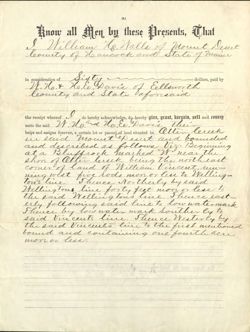 Know all Men by these Presents, That
I William H. Walls of Mount Desert
County of Hancock and State of Maine
in consideration of Sixty dollars, paid by
W. H. & H. E. Davis of Ellsworth
County and State aforesaid
the receipt whereof I do hereby acknowledge, do hereby give, grant, bargain, sell and convey
unto the said W. H. & H. E. Davis their
heirs and assigns forever, a certain lot or parcel of land situated in
in said Mount Desert and bounded
and described as follows Viz: Beginning
at a marked W. near the
shore of being the northeast
corner of land of William Vincent
west five rods more or less to Welling-
tons line. Thence Northerly by said
Wellingtons line forty feet more or less to
the said Wellingtons line. Thence east-
erly following said line to Low water mark
Thence by low water mark Southerly to
said Vincents line. Thence Westerly by
the said Vincents line to the first mentioned
bound and containing one fourth acre
more or less.